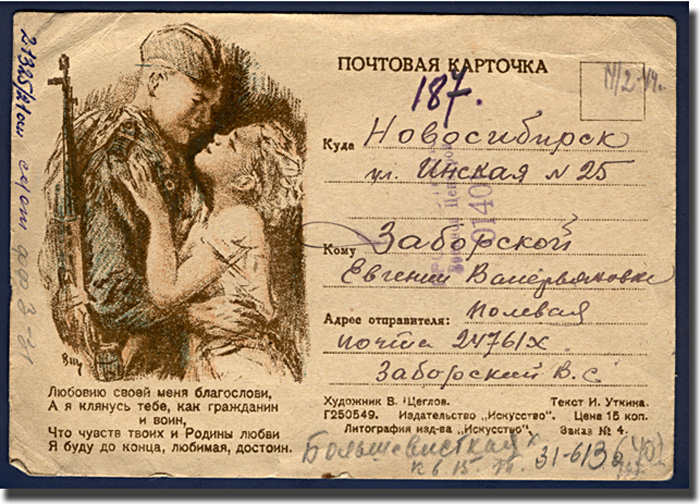 ПОЧТОВАЯ КАРТОЧКА
187.
Куда Новосибирск
ул. Инская N 25
0140
Кому Заборской
Евгении Валерьяновне
Адрес отправителя: Полевая
почта 24761Х
Заборский В. С
Вщ
Любовию своей меня благослови,
А я клянусь тебе, как гражданин
и воин,
Что чувств твоих и Родины любви
Я буду до конца, любимая, достоин.
Художник В. Щеглов. Текст И. Уткина.
Г250549. Издательство „Искусство". Цена 15 коп.
Литография изд-ва „Искусство". Заказ № 4.
Большевистская
31-613